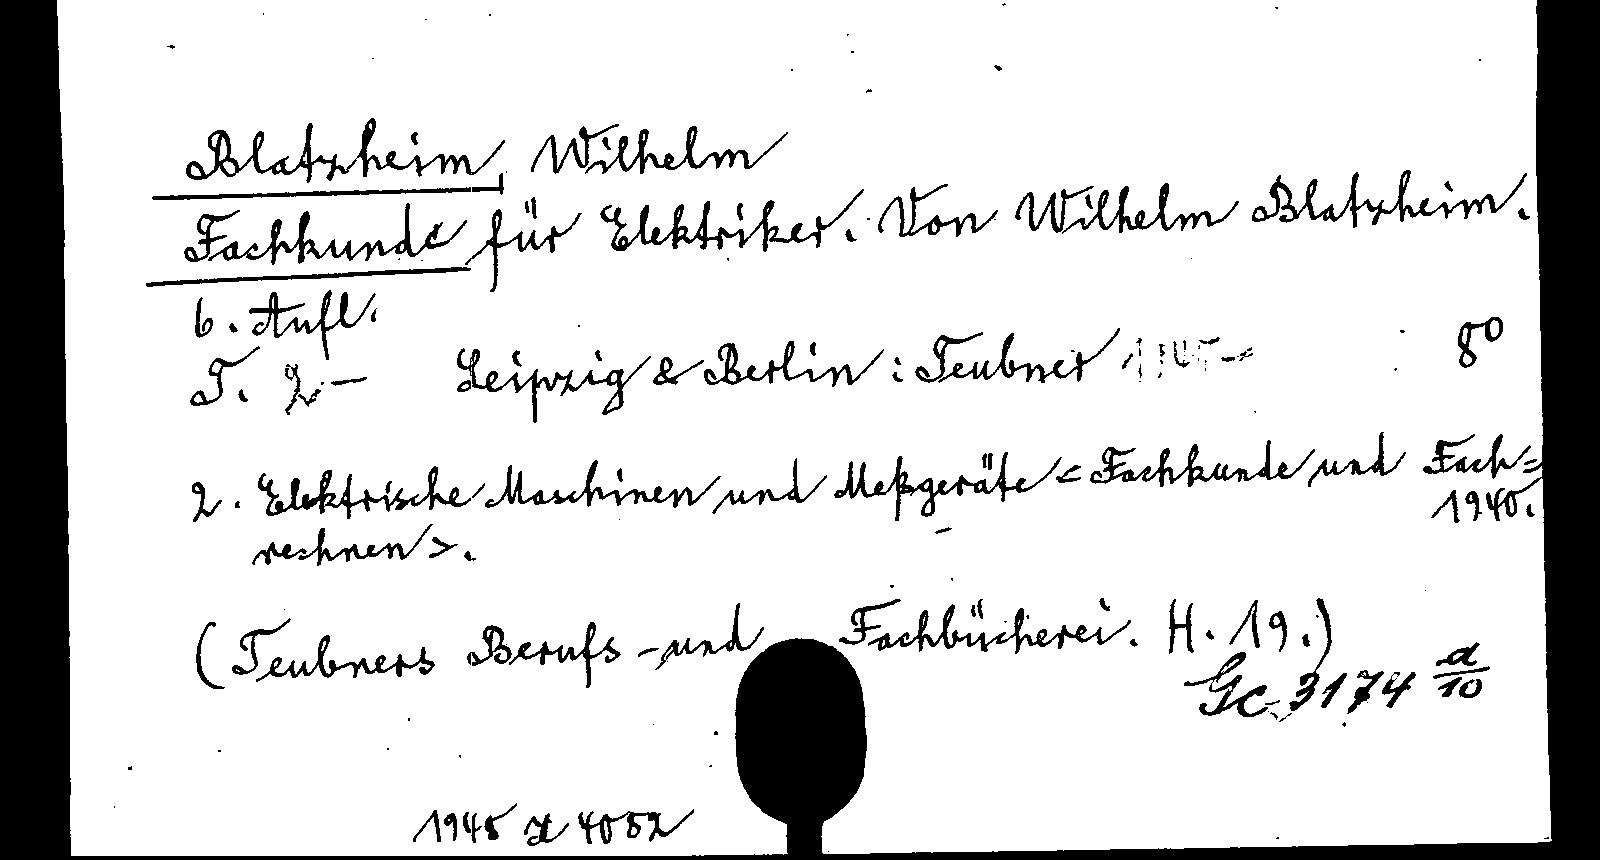 Blatzheim, Wilhelm
Fachkunde für Elektriker. Von Wilhelm Blatzheim.
6. Aufl.
T. 2 – Leipzig & Berlin : Teubner 8°
2. Elektrische Maschinen und Meßgeräte < Fachkunde und Fach=
1940.
rechnen >.
(Teubners Berufs - und Fachbücherei. H. 19.)
Gc 3174 a/10
1945 4052